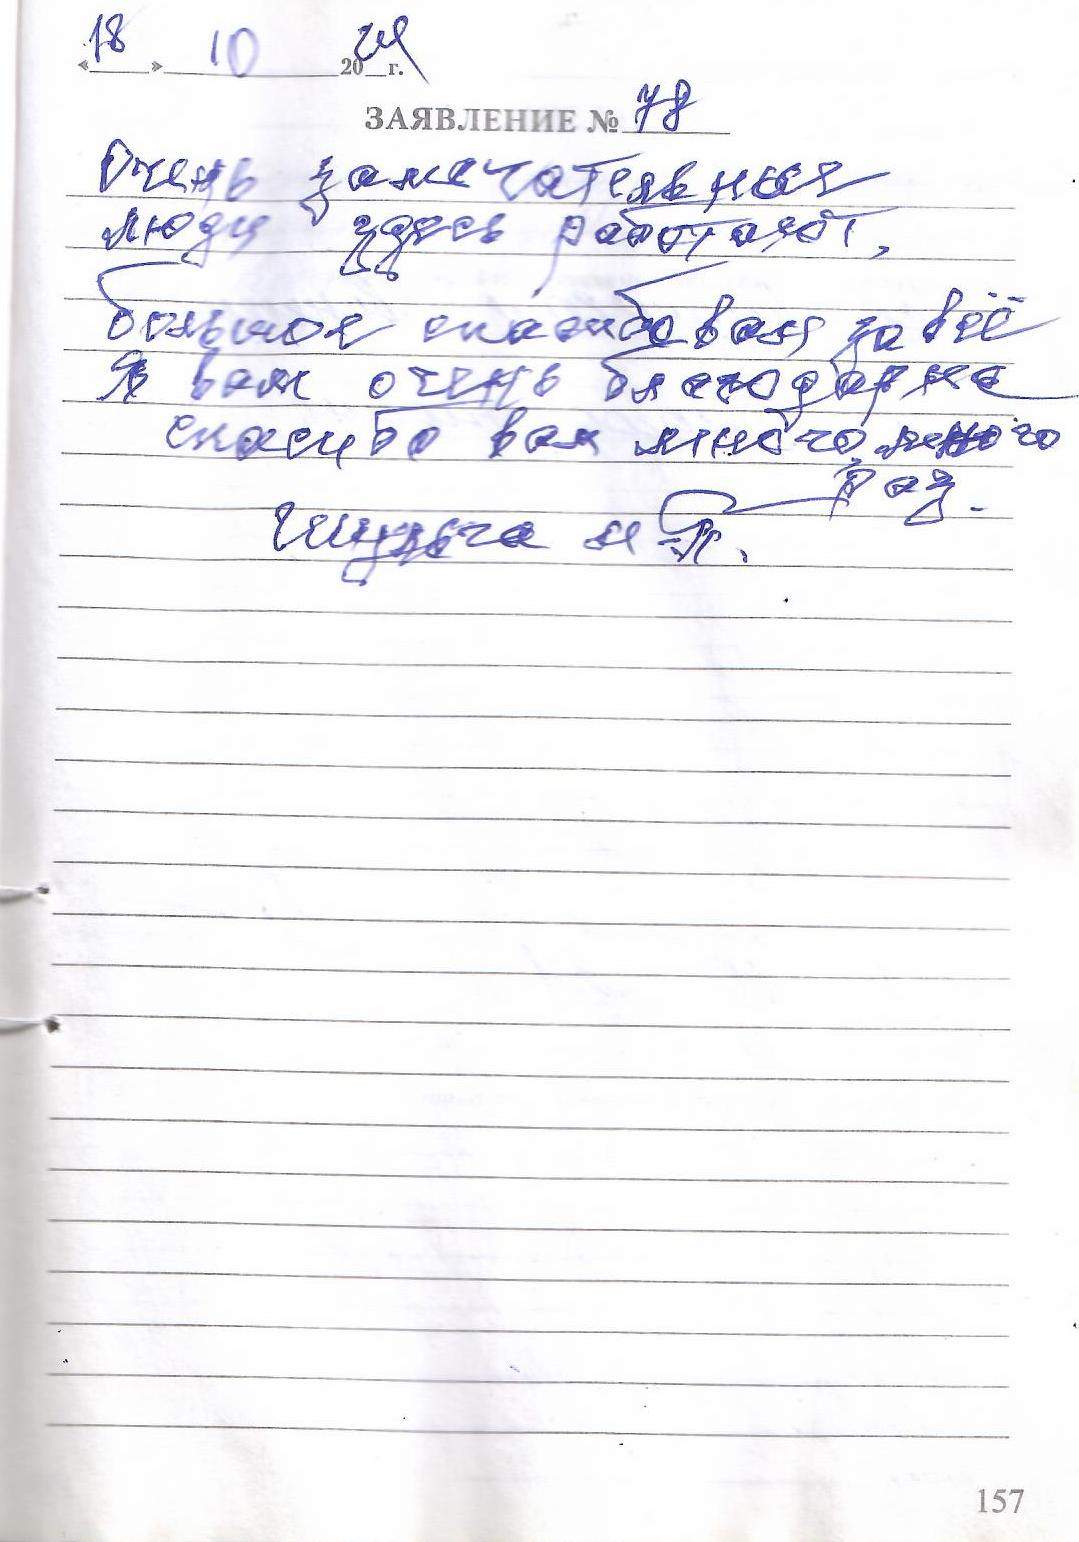 «18» 10 2024 г.
ЗАЯВЛЕНИЕ № 78
Очень замечательные
люди здесь работают,
большое спасибо вам за всё
Я вам очень благодарна
спасибо вам много много
раз.
Шульга Н.П.
157